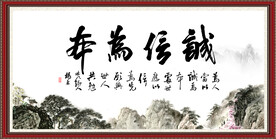 誠信為本
為人
當以
誠為
本
處世
應以
信
為先
願與
世人
共勉